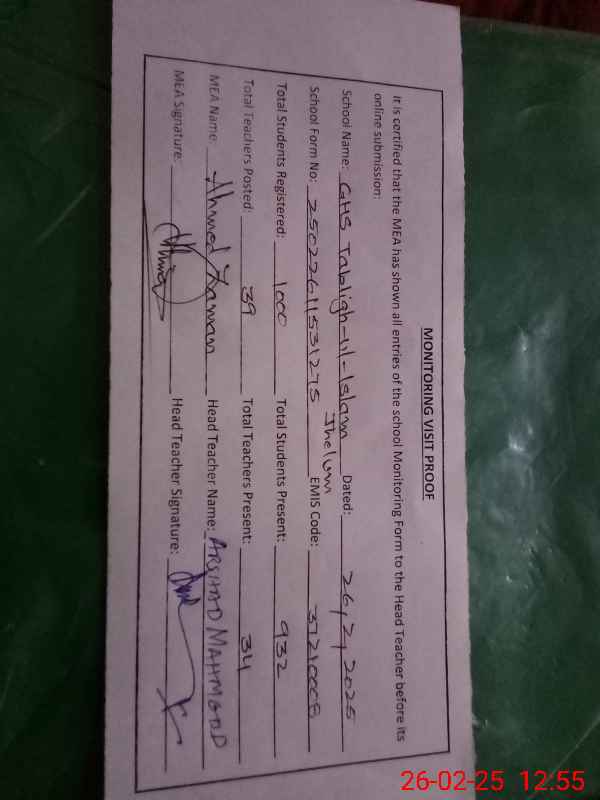 MONITORING VISIT PROOF
It is certified that the MEA has shown all entries of the school Monitoring Form to the Head Teacher before its
online submission:
School Name: GHS Tabligh-ul-Islam Jhelum Dated: 26,2,2025
School Form No: 25022611531275 EMIS Code: 37210008
Total Students Registered: 1000 Total Students Present: 932
Total Teachers Posted: 39 Total Teachers Present: 34
MEA Name: Ahmed Zaman Head Teacher Name: ARSHAD MAHMOOD
MEA Signature: Head Teacher Signature:
26-02-25 12:55